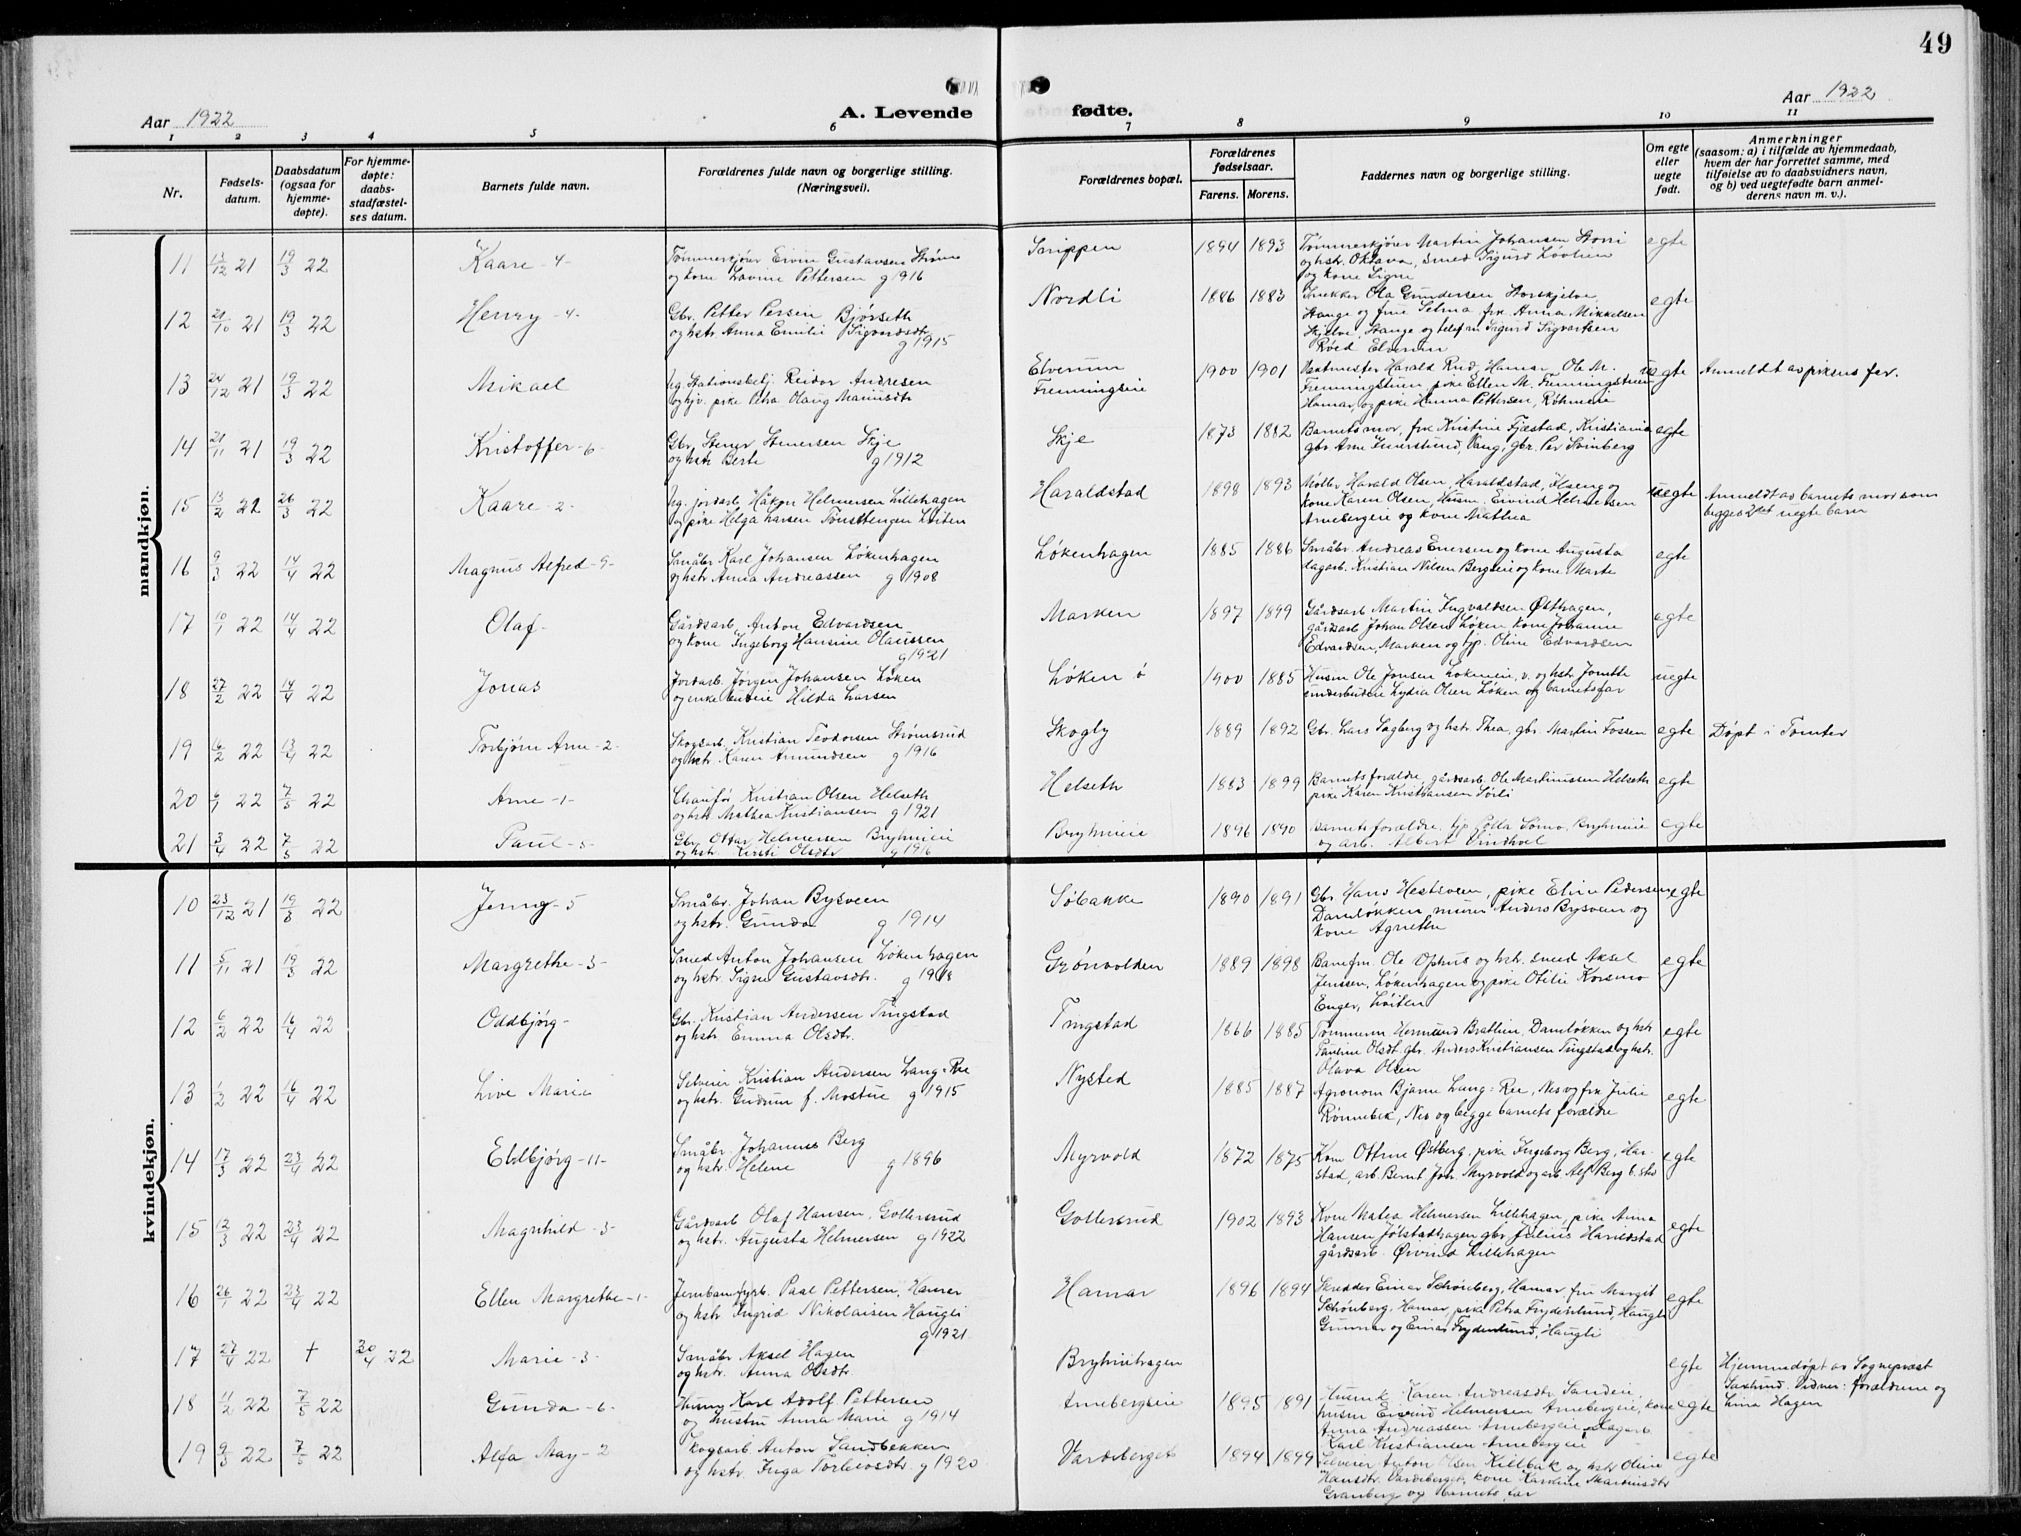 49
Aar 1922
A. Levende
fødte.
Aar 1922
1 2 3 4 5 6 7 8 9 10 11
Nr.
Fødsels-
datum.
Daabsdatum
(ogsaa for
hjemme-
døpte).
For hjemme-
døpte:
daabs-
stadfæstel-
ses datum.
Barnets fulde navn.
Forældrenes fulde navn og borgerlige stilling.
(Næringsvei).
Forældrenes bopæl.
Forældrenes
fødselsaar.
Farens. Morens.
Faddernes navn og borgerlige stilling.
Om egte
eller
uegte
født.
Anmerkninger
(saasom: a) i tilfælde av hjemmedaab,
hvem der har forrettet samme, med
tilføielse av to daabsvidners navn,
og b) ved uegtefødte barn anmel-
derens navn m. v.).
mandkjøn.
11 13/12 21 19/3 22 Kaare -4-
Tømmerkjører Eivin Gustavsen Strøm
og kone Lavine Pettersen g 1916
1894 1893 Tømmerkjører Martin Johansen
og hstr. Oktava, smed Sigurd Løvlien
og kone Signe
egte
12 21/10 21 19/3 22 Henry -4-
Gbr. Petter Persen Bjørseth
og hstr. Anna Emilie Sigvardsdtr.
g 1915
Nordli 1886 1883 Snekker Ola Gundersen
Stange og frue Selma frk. Anna Mikkelsen
Skjelve, Stange og Sigurd Sigvartsen
Røed Elverum
egte
13 24/12 21 19/3 22 Mikael
ug. Stationsbetj. Reidar Andresen
og hjv. pike Petra Olaug
Elverum
1900 1901 Vaktmester Harald Rud, Hamar, Ole M.
pike Ellen M.
Hamar, og pike Hanna Pettersen,
uegte Anmeldt av pikens far.
14 21/11 21 19/3 22 Kristoffer -6-
Gbr. Stener Stenersen Skje
og hstr. Berte g 1912
Skje 1873 1882 Barnets mor, frk Kristine Fjæstad, Kristiania
gbr Arne Vang, gbr. Per Svinberg
egte
15 13/2 22 26/3 22 Kaare -2-
ug. jordarb. Håkon Helmersen Lillehagen
og pike Helga Larsen Løiten
Haraldstad 1898 1893 Møller Harald Olsen, Haraldstad, Ilseng og
kone Karen Olsen, Husm. Eivind Helmersen
Arnebergeie og kone Mathea
uegte Anmeldt av barnets mor som
begges 2det uegte barn
16 9/3 22 14/4 22 Magnus Alfred -9-
Småbr. Karl Johansen Løkenhagen
og hstr. Anna Andreassen g 1908
Løkenhagen 1885 1886 Småbr. Andreas Enersen og kone Augusta
dagarb. Kristian Nilsen Bergseie og kone Marte
egte
17 10/1 22 14/4 22 Olaf-
Gårdsarb. Anton Edvardsen
og kone Ingeborg Hansine Olaussen
g 1921
Marken 1897 1899 Gårdsarb Martin Ingvaldsen Østhagen,
gårdsarb Johan Olsen Løken kone Johanne
Edvardsen, Marken og tjp. Oline Edvardsen
egte
18 27/2 22 14/4 22 Jonas
Jordarb. Jørgen Johansen Løken
og enke Hilda Larsen
Løken ø 1900 1885 Husm Ole Jonsen Løkeneie,
Lydia Olsen Løken og barnets far
uegte
19 16/2 22 13/4 22 Torbjørn Arne -2-
Skogsarb. Kristian Teodorsen Strømsrud
og hstr. Karen Amundsen g 1916
Skogly 1889 1892 Gbr. Lars Sagberg og hstr. Thea, gbr. Martin Fossen
egte Døpt i Tomter
20 22 7/5 22 Arne -1-
Chaufør Kristian Olsen Helseth
og hstr. Mathea Kristiansen g 1921
Helseth 1883 1899 Barnets forældre, gårdsarb. Ole Martinussen Helseth
pike Karen Kristiansen Sørli
egte
21 3/4 22 7/5 22 Paul -5-
Gbr. Ottar Helmersen Bryhnieie
og hstr. Kirsti Olsdtr. g 1916
Bryhnieie 1896 1890 Barnets forældre, tjp. Bryhnieie
og arb. Albert
egte
kvindekjøn.
10 23/12 21 19/3 22 Jenny -5
Småbr. Johan Bysveen
og hstr. Gunda g 1914
Søbakke 1890 1891 Gbr Hans Hestsveen, pike Elise Pedersen
Damløkken, murer Anders Bysveen og
kone Agnethe
egte
11 5/11 21 19/3 22 Margrethe -3-
Smed Anton Johansen Løkenhagen
og hstr. Signe Gustavsdtr. g 1918
Grønvolden 1889 1898 Banefm. Ole Ophus og hstr. smed Aksel
Jenssen, Løkenhagen og pike Otilie Korsmo
Enger, Løiten
egte
12 6/2 22 16/4 22 Oddbjørg -
Gbr. Kristian Andersen Tingstad
og hstr Emma Olsdtr.
Tingstad 1866 1885 Tømmerm Hermund Bratlien, Damløkken og hstr
Pauline Olsdt. gbr. Anders Kristiansen Tingstad og hstr.
Olava Olsen
egte
13 1/2 22 16/4 22 Live Marie
Selveier Kristian Andersen Lang-Ree
og hstr. Gudrun f. Mostue g 1915
Nysted 1885 1887 Agronom Bjarne Lang-Ree, Nes og frk Julie
Rønnebek, Nes og begge barnets forældre
egte
14 17/3 22 23/4 22 Eldbjørg -11-
Småbr. Johannes Berg
og hstr. Helene g 1896
Myrvold 1872 1875 Kone Ottine Østberg, pike Ingeborg Berg, Har-
stad, arb. Bernt Joh. Myrvold og arb Alf Berg b. sts
egte
15 12/3 22 23/4 22 Magnhild -3-
Gårdsarb Olaf Hansen, Gollersrud
og hstr. Augusta Helmersen g 1922
Gollersrud 1902 1893 Kone Matea Helmersen Lillehagen, pike Anna
Hansen Jølstadhagen gbr. Julius Haraldstad
gårdsarb. Øivind Lillehagen
egte
16 26/1 22 23/4 22 Ellen Margrethe -1-
Jernbanefyrb. Paal Pettersen, Hamar
og hstr Ingrid Nikolaisen Haugli
g 1921
Hamar 1896 1894 Skrædder Einar Schønberg, Hamar fru Margit
Schønberg, Hamar, pike Petra Frydenlund, Haugli
Gunnar og Einar Frydenlund, Haugli
egte
17 27/4 22 † 30/4 22 Marie -3-
Småbr Aksel Hagen
og hstr. Anna Olsdtr.
Bryhnihagen
egte Hjemmedøpt av Sogneprest
Saxlund. Vidner: forældrene og
Lina Hagen
18 11/2 22 7/5 22 Gunda -6-
Husm Karl Adolf Pettersen
og hustru Anna Marie g 1914
Arnebergseie 1895 1891 Karen Andreasdtr Sandeie,
husm Eivind Helmersen Arnebergeie, kone
Anna Andreassen Arnebergeie, dagarb
Karl Kristiansen Arnebergeie
egte
19 9/3 22 7/5 22 Alfa May -2
Skogsarb Anton Sandbekken
og hstr. Inga Torleivsdtr. g 1920
Vardeberget 1894 1899 Selveier Anton Olsen Killbak og hstr Oline
Hansdtr. Vardeberget, kone Karoline Martinsdtr
Granberg og barnets far
egte